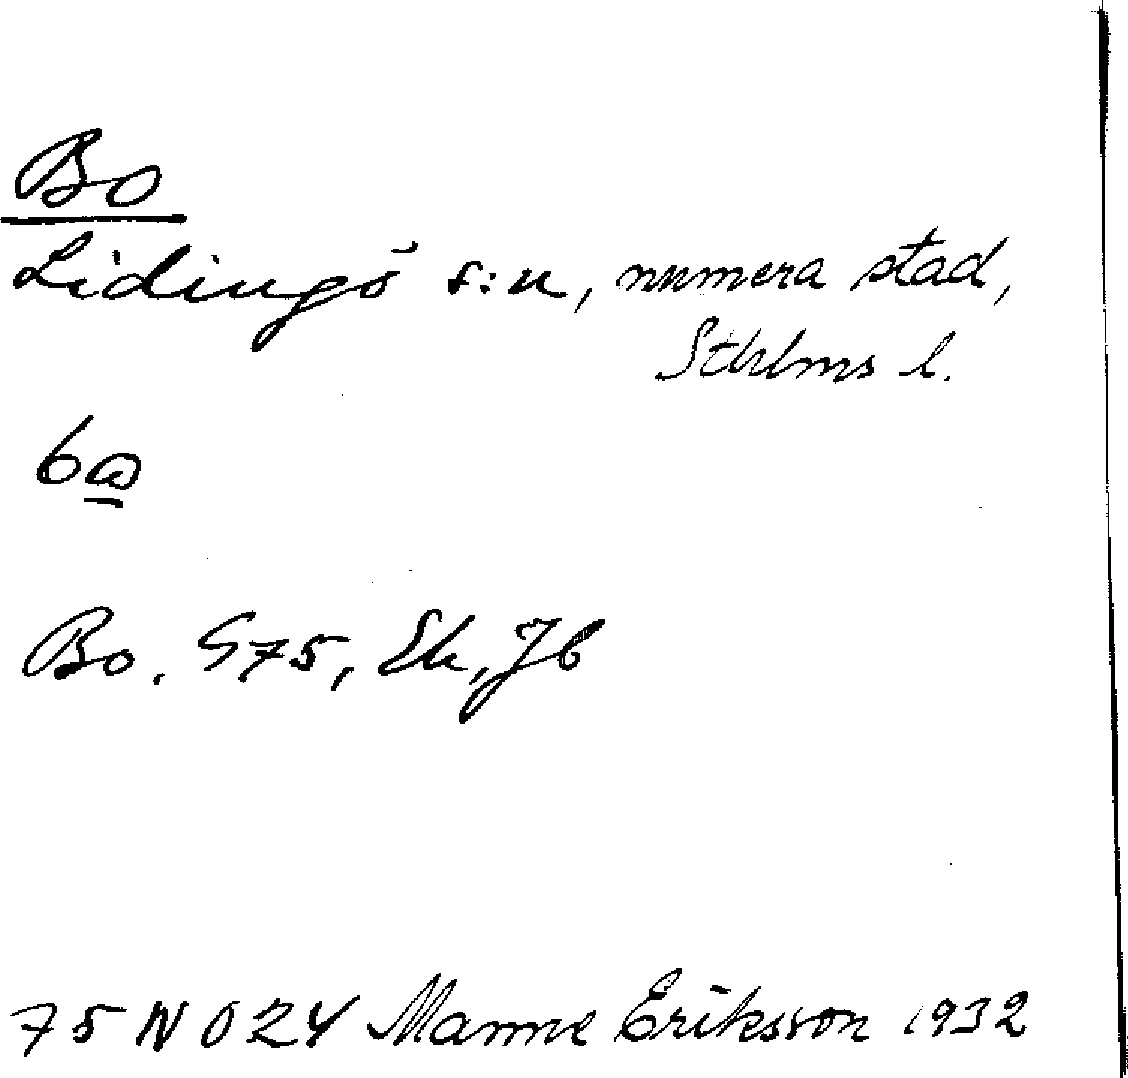 Bo
Lidingö s:n, numera stad,
Sthlms l.
Bo. S75, Ek, Jb
75 N O 24 Manne Eriksson 1932